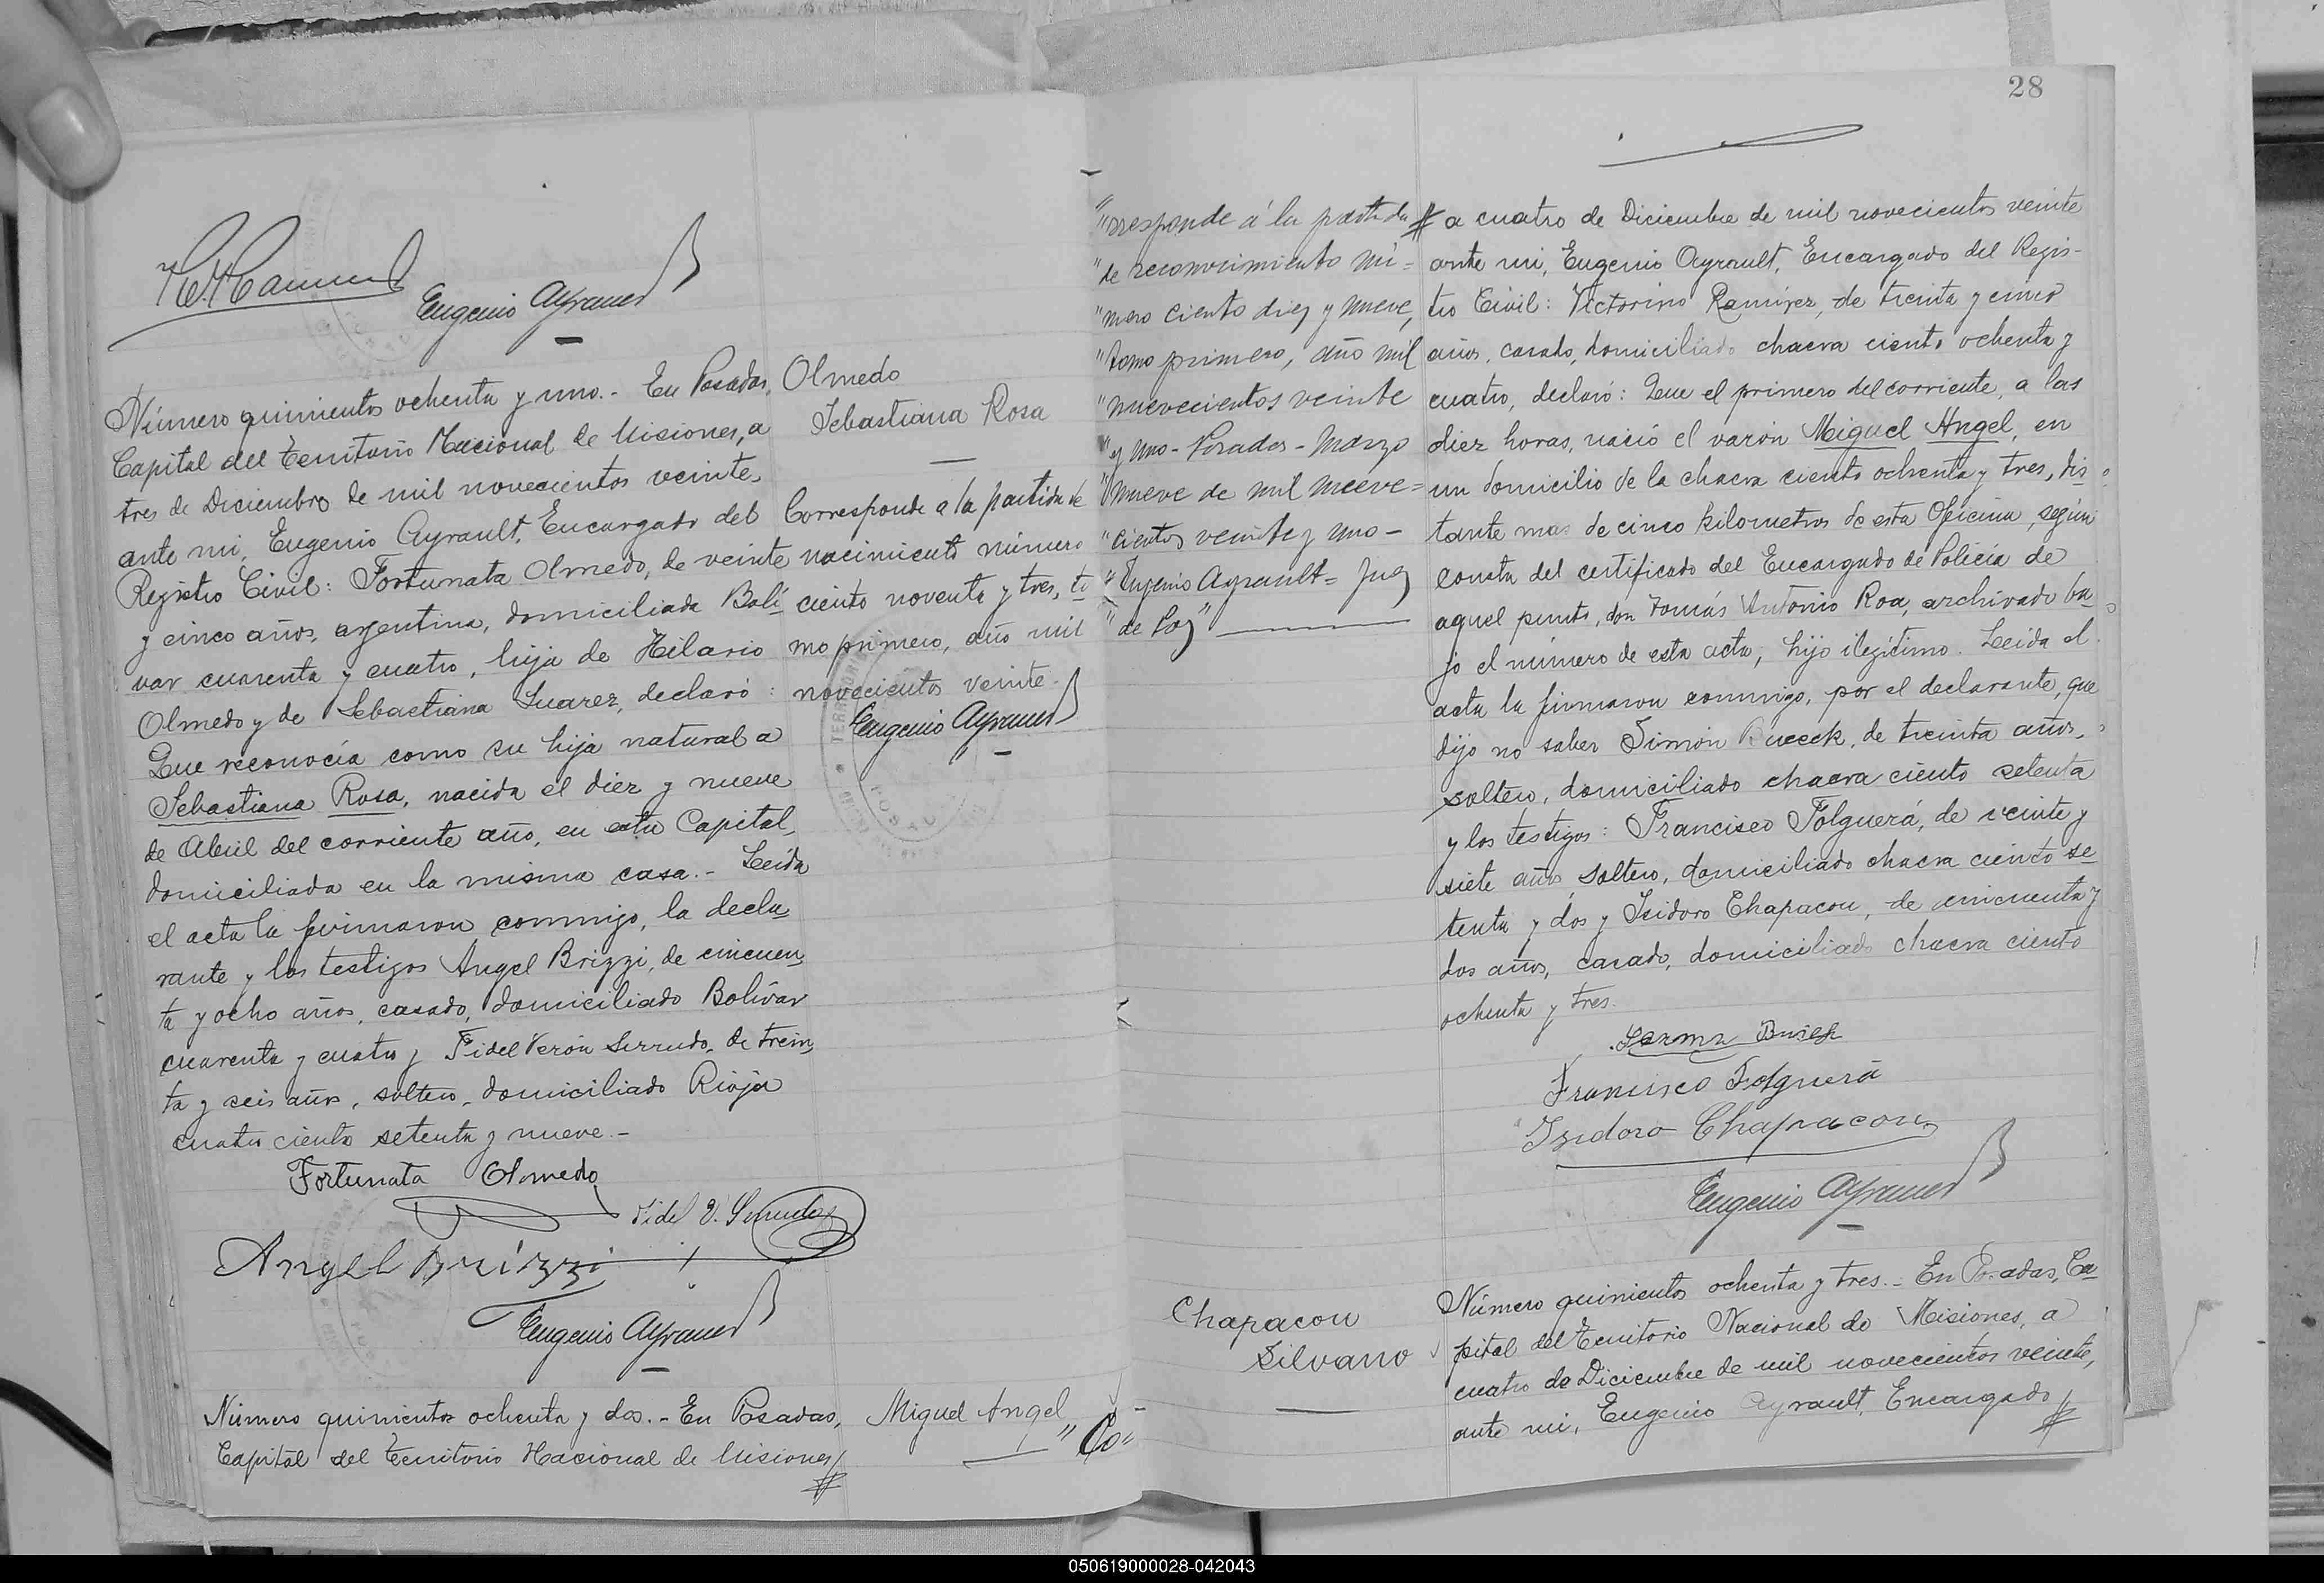 Eugenio Ayrault
Número quinientos ochenta y uno.- En Posadas,
Capital del Territorio Nacional de Misiones, a
tres de Diciembre de mil novecientos veinte,
ante mi, Eugenio Ayrault, Encargado del
Registro Civil: Fortunata Olmedo, de veinte
y cinco años, argentina, domiciliada Bolí
var cuarenta y cuatro, hija de Hilario
Olmedo y de Sebastiana Suarez, declaró:
Que reconocía como su hija natural a
Sebastiana Rosa, nacida el diez y nueve
de Abril del corriente año, en esta Capital,
domiciliada en la misma casa.- Leída
el acta la firmaron conmigo, la decla
rante y los testigos Angel Brizzi, de cincuen
ta y ocho años, casado, domiciliado Bolívar
cuarenta y cuatro y Fidel Verón Serrudo, de trein
ta y seis años, soltero, domiciliado Rioja
cuatro ciento setenta y nueve.-
Fortunata Olmedo
Fidel V. Serrudo
Angel Brizzi
Eugenio Ayrault
Número quinientos ochenta y dos.- En Posadas,
Capital del Territorio Nacional de Misiones//
Olmedo
Sebastiana Rosa
Corresponde a la partida de
nacimiento número
ciento noventa y tres, to
mo primero, año mil
novecientos veinte.
Eugenio Ayrault
Miguel Angel
" Co"
28
"rresponde á la partida
"de reconocimiento nú=
"mero ciento diez y nueve,
"tomo primero, año mil
"nuevecientos veinte
"y uno - Posadas - Marzo
"nueve de mil nueve=
"cientos veinte y uno -
"Eugenio Ayrault= Juez
"de Paz"
// a cuatro de Diciembre de mil novecientos veinte
ante mi, Eugenio Ayrault, Encargado del Regis-
tro Civil: Victorino Ramírez, de treinta y cinco
años, casado, domiciliado chacra ciento ochenta y
cuatro, declaró: Que el primero del corriente, a las
diez horas, nació el varón Miguel Angel, en
un domicilio de la chacra ciento ochenta y tres, dis
tante mas de cinco kilometros de esta Oficina, según
consta del certificado del Encargado de Policía de
aquel punto, don Tomás Antonio Roa, archivado ba
jo el número de esta acta; hijo ilegítimo. Leída el
acta la firmaron conmigo, por el declarante, que
dijo no saber Simón, de treinta años,
soltero, domiciliado chacra ciento setenta
y los testigos: Francisco Folguerá, de veinte y
siete años, soltero, domiciliado chacra ciento se
tenta y dos y Isidoro Chapacou, de cincuenta y
dos años, casado, domiciliado chacra ciento
ochenta y tres.
Francisco Folguerá
Isidoro Chapacou
Eugenio Ayrault
Chapacou
Silvano
Número quinientos ochenta y tres.- En Posadas, Ca
pital del Territorio Nacional de Misiones, a
cuatro de Diciembre de mil novecientos veinte,
ante mi, Eugenio Ayrault, Encargado//
050619000028-042043